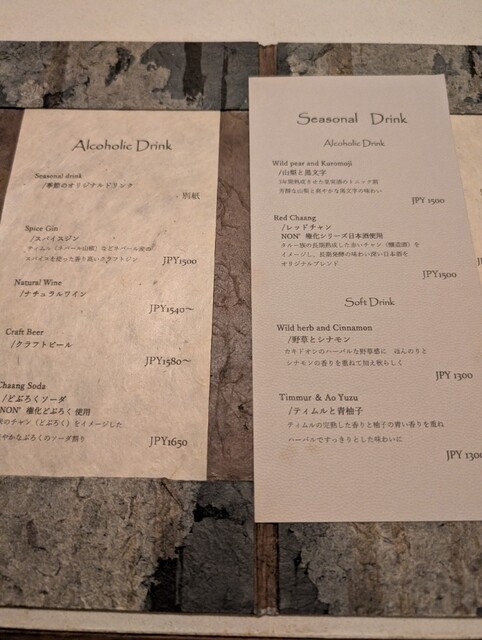 Alcoholic Drink
Seasonal drink
/季節のオリジナルドリンク
別紙
Spice Gin
/スパイスジン
ティムル（ネパール山椒）などネパール産の
スパイスを使った香り高いクラフトジン
JPY1500
Natural Wine
/ナチュラルワイン
JPY1540〜
Craft Beer
/クラフトビール
JPY1580〜
Chaang Soda
/どぶろくソーダ
NON' 稀化どぶろく 使用
のチャン（どぶろく）をイメージした
やかなどぶろくのソーダ割り
JPY1650
Seasonal Drink
Alcoholic Drink
Wild pear and Kuromoji
/山梨と黒文字
芳醇な山梨と爽やかな黒文字の味わい
JPY 1500
Red Chaang
/レッドチャン
NON' 稀化シリーズ日本酒使用
族の長期熟成した赤いチャン（醸造酒）を
イメージし、長期発酵の味わい深い日本酒を
オリジナルブレンド
JPY1500
Soft Drink
Wild herb and Cinnamon
/野草とシナモン
カキドオシのハーバルな野草感に ほんのりと
シナモンの香りを重ねて加え秋らしく
JPY 1300
Timmur & Ao Yuzu
/ティムルと青柚子
ティムルの完熟した香りと柚子の青い香りを重ね
ハーバルですっきりとした味わいに
JPY 1300